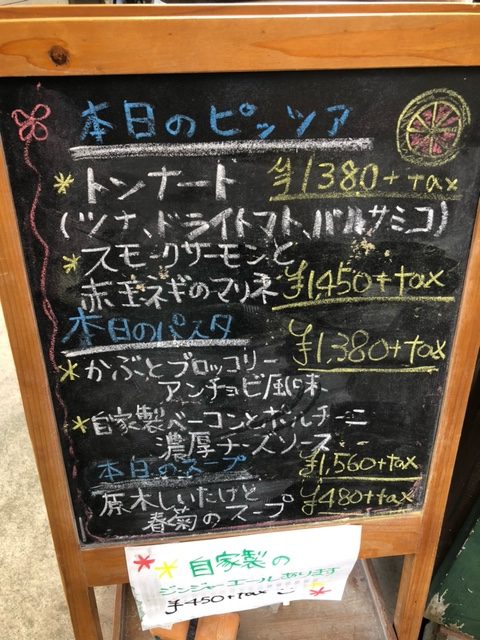 本日のピッツァ
トンナード ¥1380+tax
(ツナ、ドライトマト、バルサミコ)
スモークサーモンと
赤玉ネギのマリネ ¥1,450+tax
本日のパスタ
かぶとブロッコリー ¥1,380+tax
アンチョビ風味
自家製ベーコンとポルチーニ
濃厚チーズソース
本日のスープ ¥1,560+tax
原木しいたけと ¥480+tax
春菊のスープ
自家製の
ジンジャーエールあります
¥450+tax